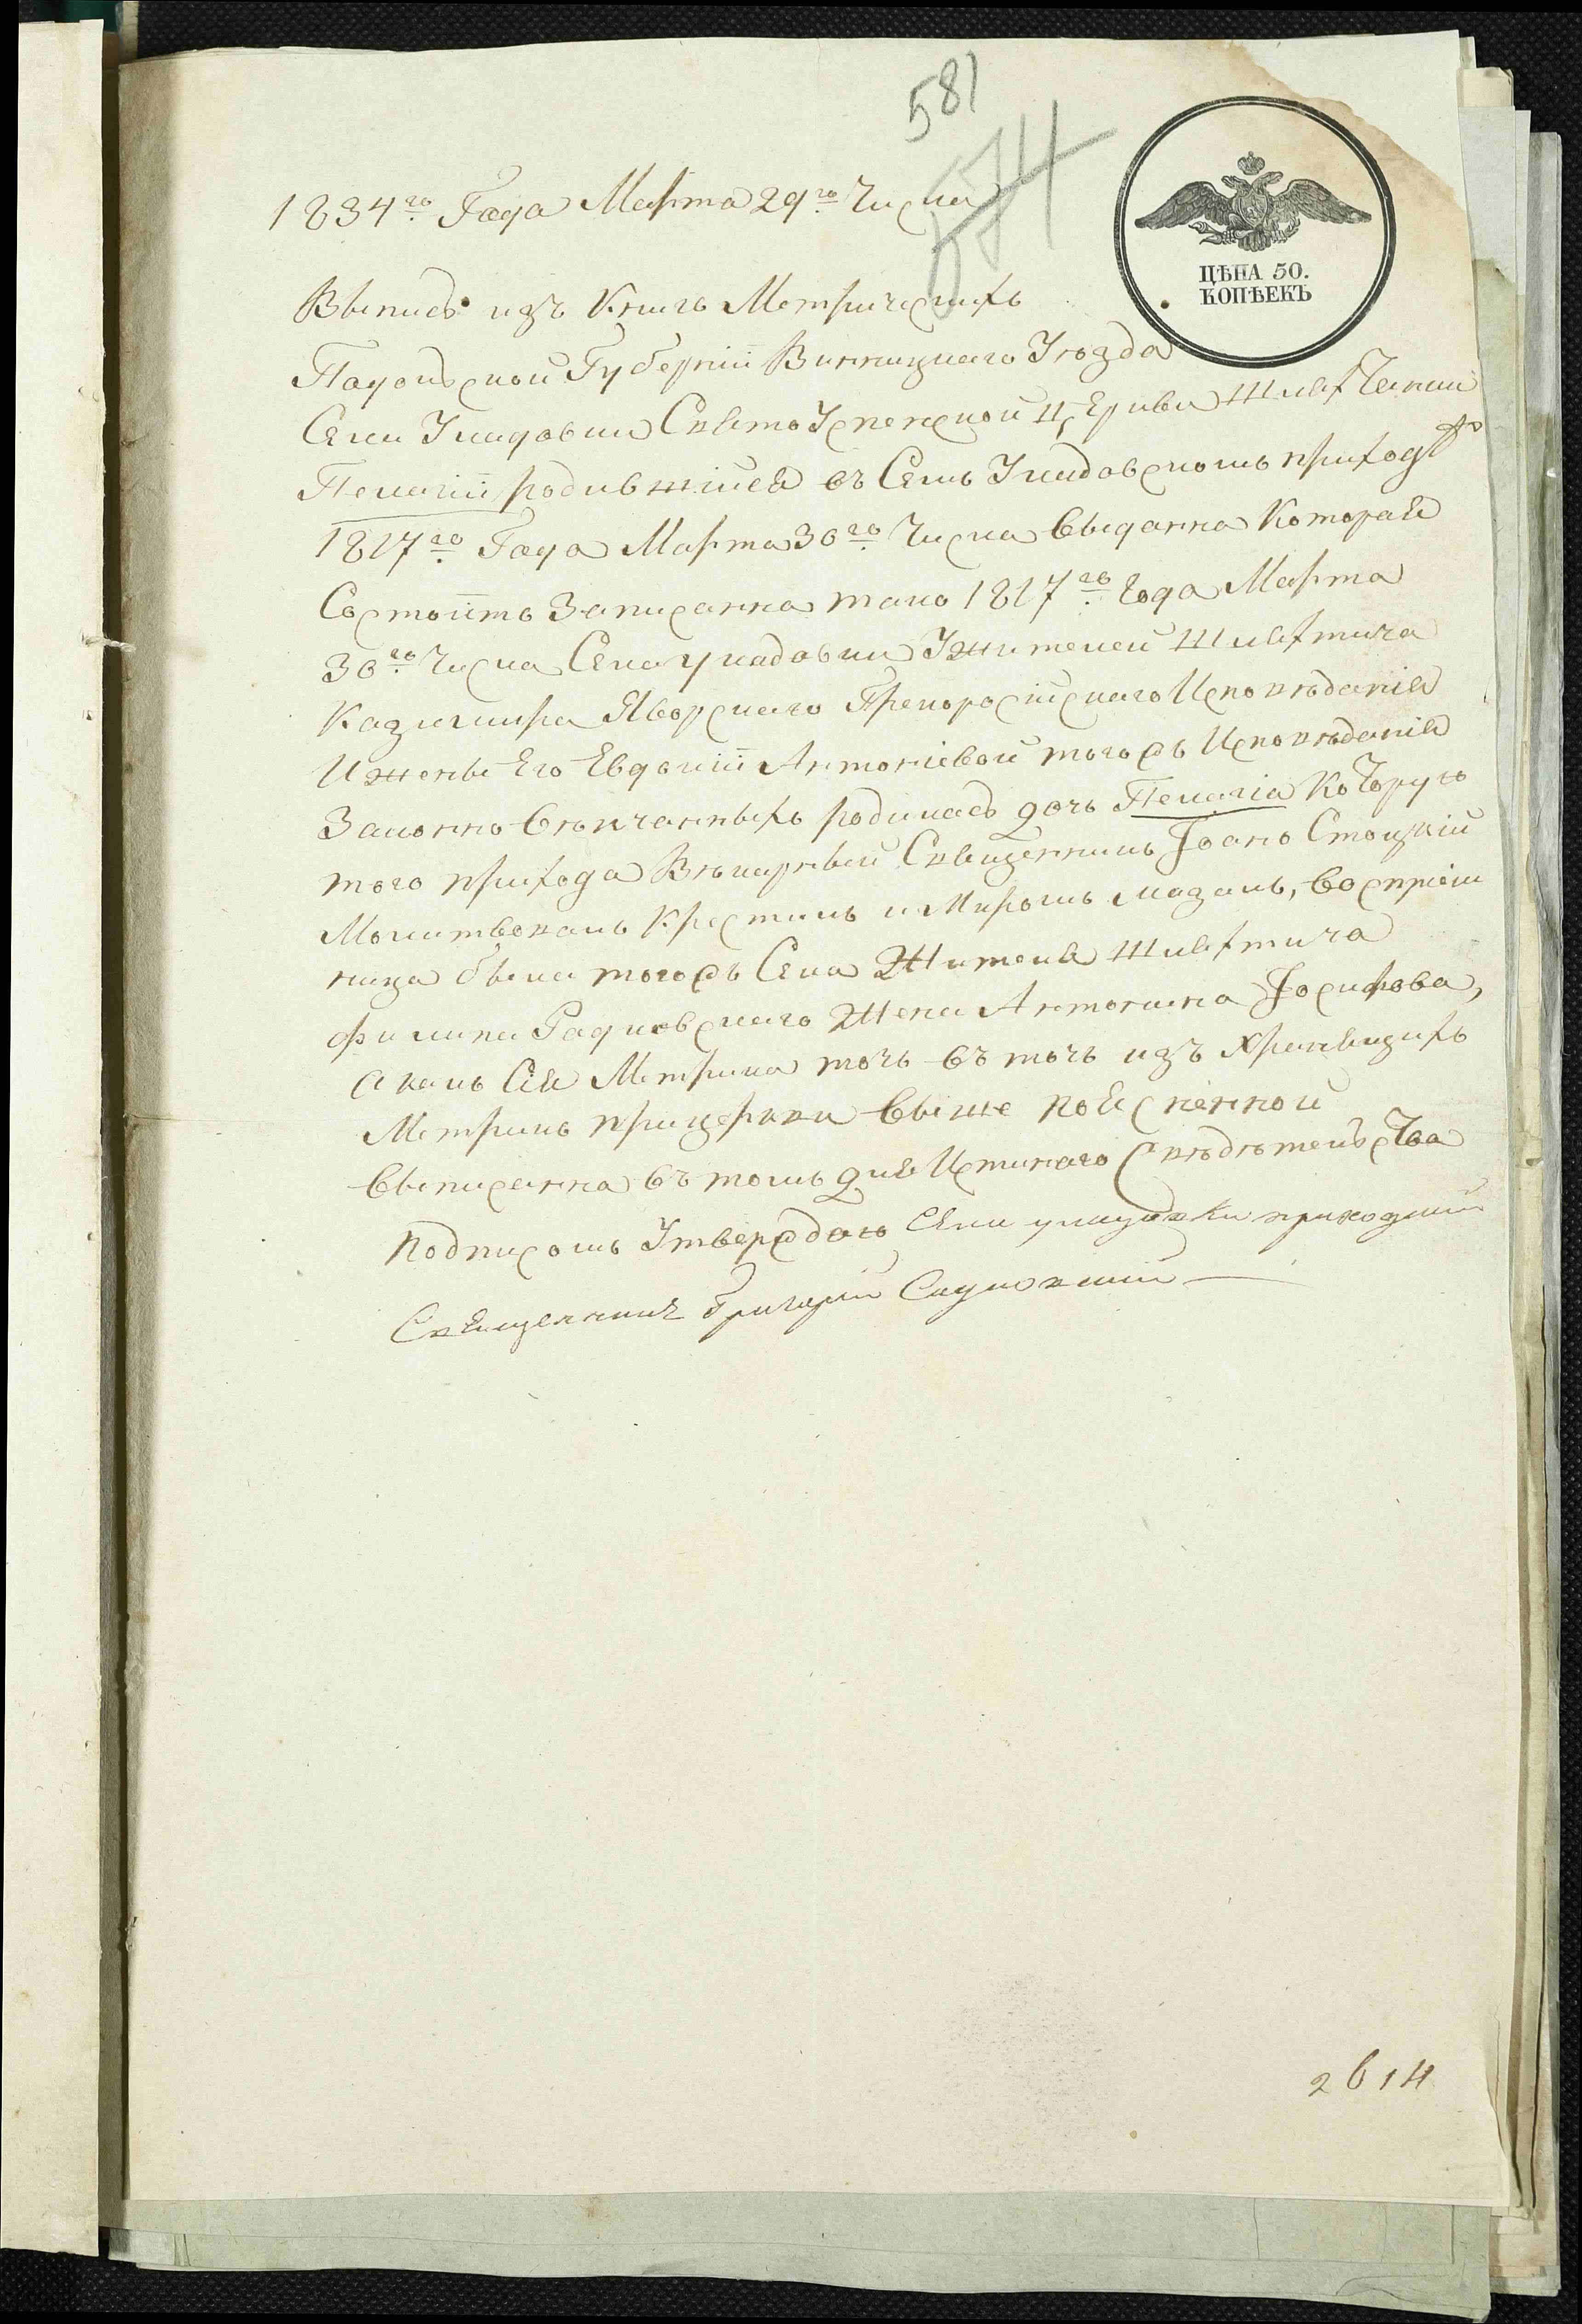 581
574
ЦѢНА 50.
КОПѢЕКЪ
1834го Года Марта 29го Числа
Выпись изъ Книгъ Метрическихъ
Подольской Губерніи Винницкаго Уѣзда
Села Уладовки Свято Успенской Церкви Шляхтянки
Пелагіи родившійся въ Селѣ Уладовскомъ приходѣ
1817го Года Марта 30го Числа выданна Которая
Состоитъ Записанна тако 1817го Года Марта
30го Числа Села уладовки Ужителей Шляхтича
Казимира Яворскаго Грекоросійскаго Исповѣданія
И жены Его Евдокіи Антоніевой тогожъ Исповѣданія
Законно вѣнчанныхъ родилась дочь Пелагіа Которую
того прихода Викарный Священникъ Іоанъ Стоцкій
Молитвовалъ Крестилъ и Миромъ мазалъ, воспріем
ница была тогожъ Села Жителя Шляхтича
филипа Радковскаго Жена Антонина Іосифова,
а какъ Сія Метрика точь въ точь изъ хранящихъ
Метрикъ прицеркви выше поясненной
выписанна въ томъ для Истинаго Свѣдѣтельства
подписомъ Утверждаю Села уладовки приходскій
Священникъ Григорій Садковскій
2614